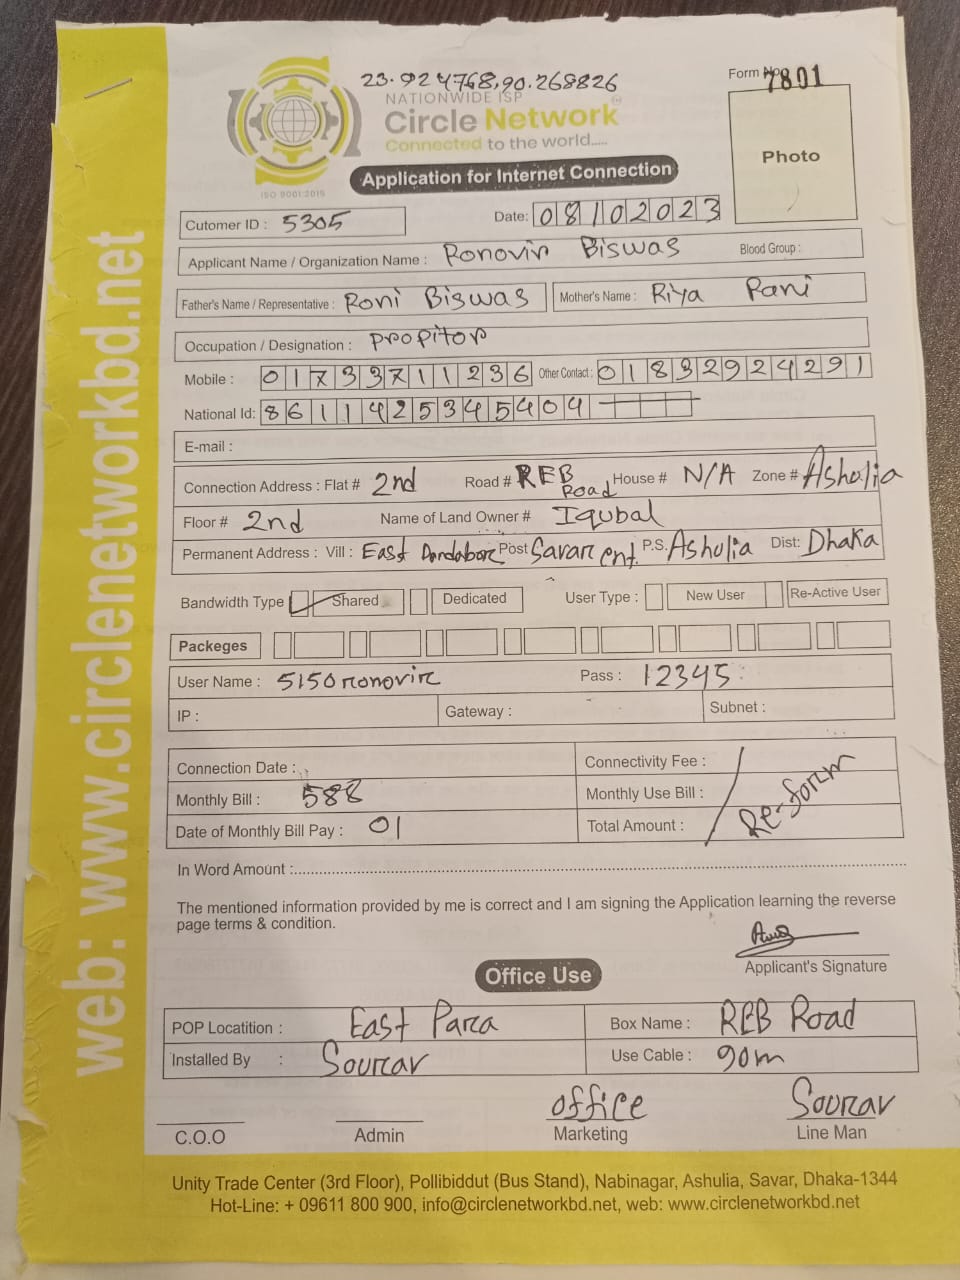 23.924768,90.268826
Form No. 7801
NATIONWIDE ISP
Circle Network
Connected to the world.....
ISO 9001:2015
Photo
Application for Internet Connection
Cutomer ID : 5305 Date: 08102023
Applicant Name / Organization Name : Ronovir Biswas Blood Group :
Father's Name / Representative : Roni Biswas Mother's Name : Riya Rani
Occupation / Designation : Propitor
Mobile : 01733711236 Other Contact : 01832924291
National Id: 8611425345404
E-mail :
Connection Address : Flat # 2nd Road # REB Road House # N/A Zone # Ashulia
Floor # 2nd Name of Land Owner # Iqubal
Permanent Address : Vill : East Dendabor Post Savar cnt. P.S. Ashulia Dist: Dhaka
Bandwidth Type Shared Dedicated User Type : New User Re-Active User
Packeges
User Name : 5150ronovir Pass : 12345
IP : Gateway : Subnet :
Connection Date : Connectivity Fee :
Monthly Bill : 588 Monthly Use Bill :
Date of Monthly Bill Pay : 01 Total Amount :
Re-form
In Word Amount :
The mentioned information provided by me is correct and I am signing the Application learning the reverse
page terms & condition.
Applicant's Signature
Office Use
POP Locatition : East Para Box Name : REB Road
Installed By : Sourav Use Cable : 90m
office Sourav
C.O.O Admin Marketing Line Man
Unity Trade Center (3rd Floor), Pollibiddut (Bus Stand), Nabinagar, Ashulia, Savar, Dhaka-1344
Hot-Line: + 09611 800 900, info@circlenetworkbd.net, web: www.circlenetworkbd.net
web: www.circlenetworkbd.net